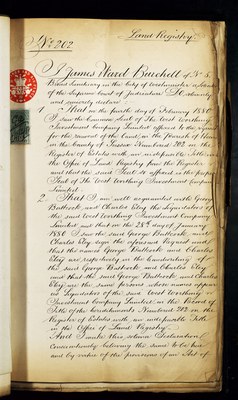 Land Registry
No. 202
I James Ward Burchell of No. 5
Broad Sanctuary in the City of Westminster a Solicitor
of the Supreme Court of Judicature Do solemnly
and sincerely declare
1 That on the fourth day of February 1880
I saw the Common Seal of The West Worthing
Investment Company Limited affixed to the
for removal of the land in the Parish of
in the County of Sussex Numbered 202 on the
Register of Estates with an indefeasible Title in
the Office of Land Registry from the Register
and that the said Seal so affixed is the proper
Seal of The West Worthing Investment Company
Limited
2 That I am well acquainted with George
Bulteock and Charles Eley the Liquidators of
the said West Worthing Investment Company
Limited and that on the 28th day of January
1880 I saw the said George Bulteock and
Charles Eley sign the aforesaid Request and
that the names George Bulteock and Charles
Eley are respectively in the handwriting of
the said George Bulteock and Charles Eley
and that the said George Bulteock and Charles
Eley are the same persons whose names appear
as Liquidators of the said West Worthing
Investment Company Limited in the Record of
Title of the hereditaments Numbered 202 on the
Register of Estates with an indefeasible Title
in the Office of Land Registry
And I make this solemn Declaration
conscientiously believing the same to be true
and by virtue of the provisions of an Act of